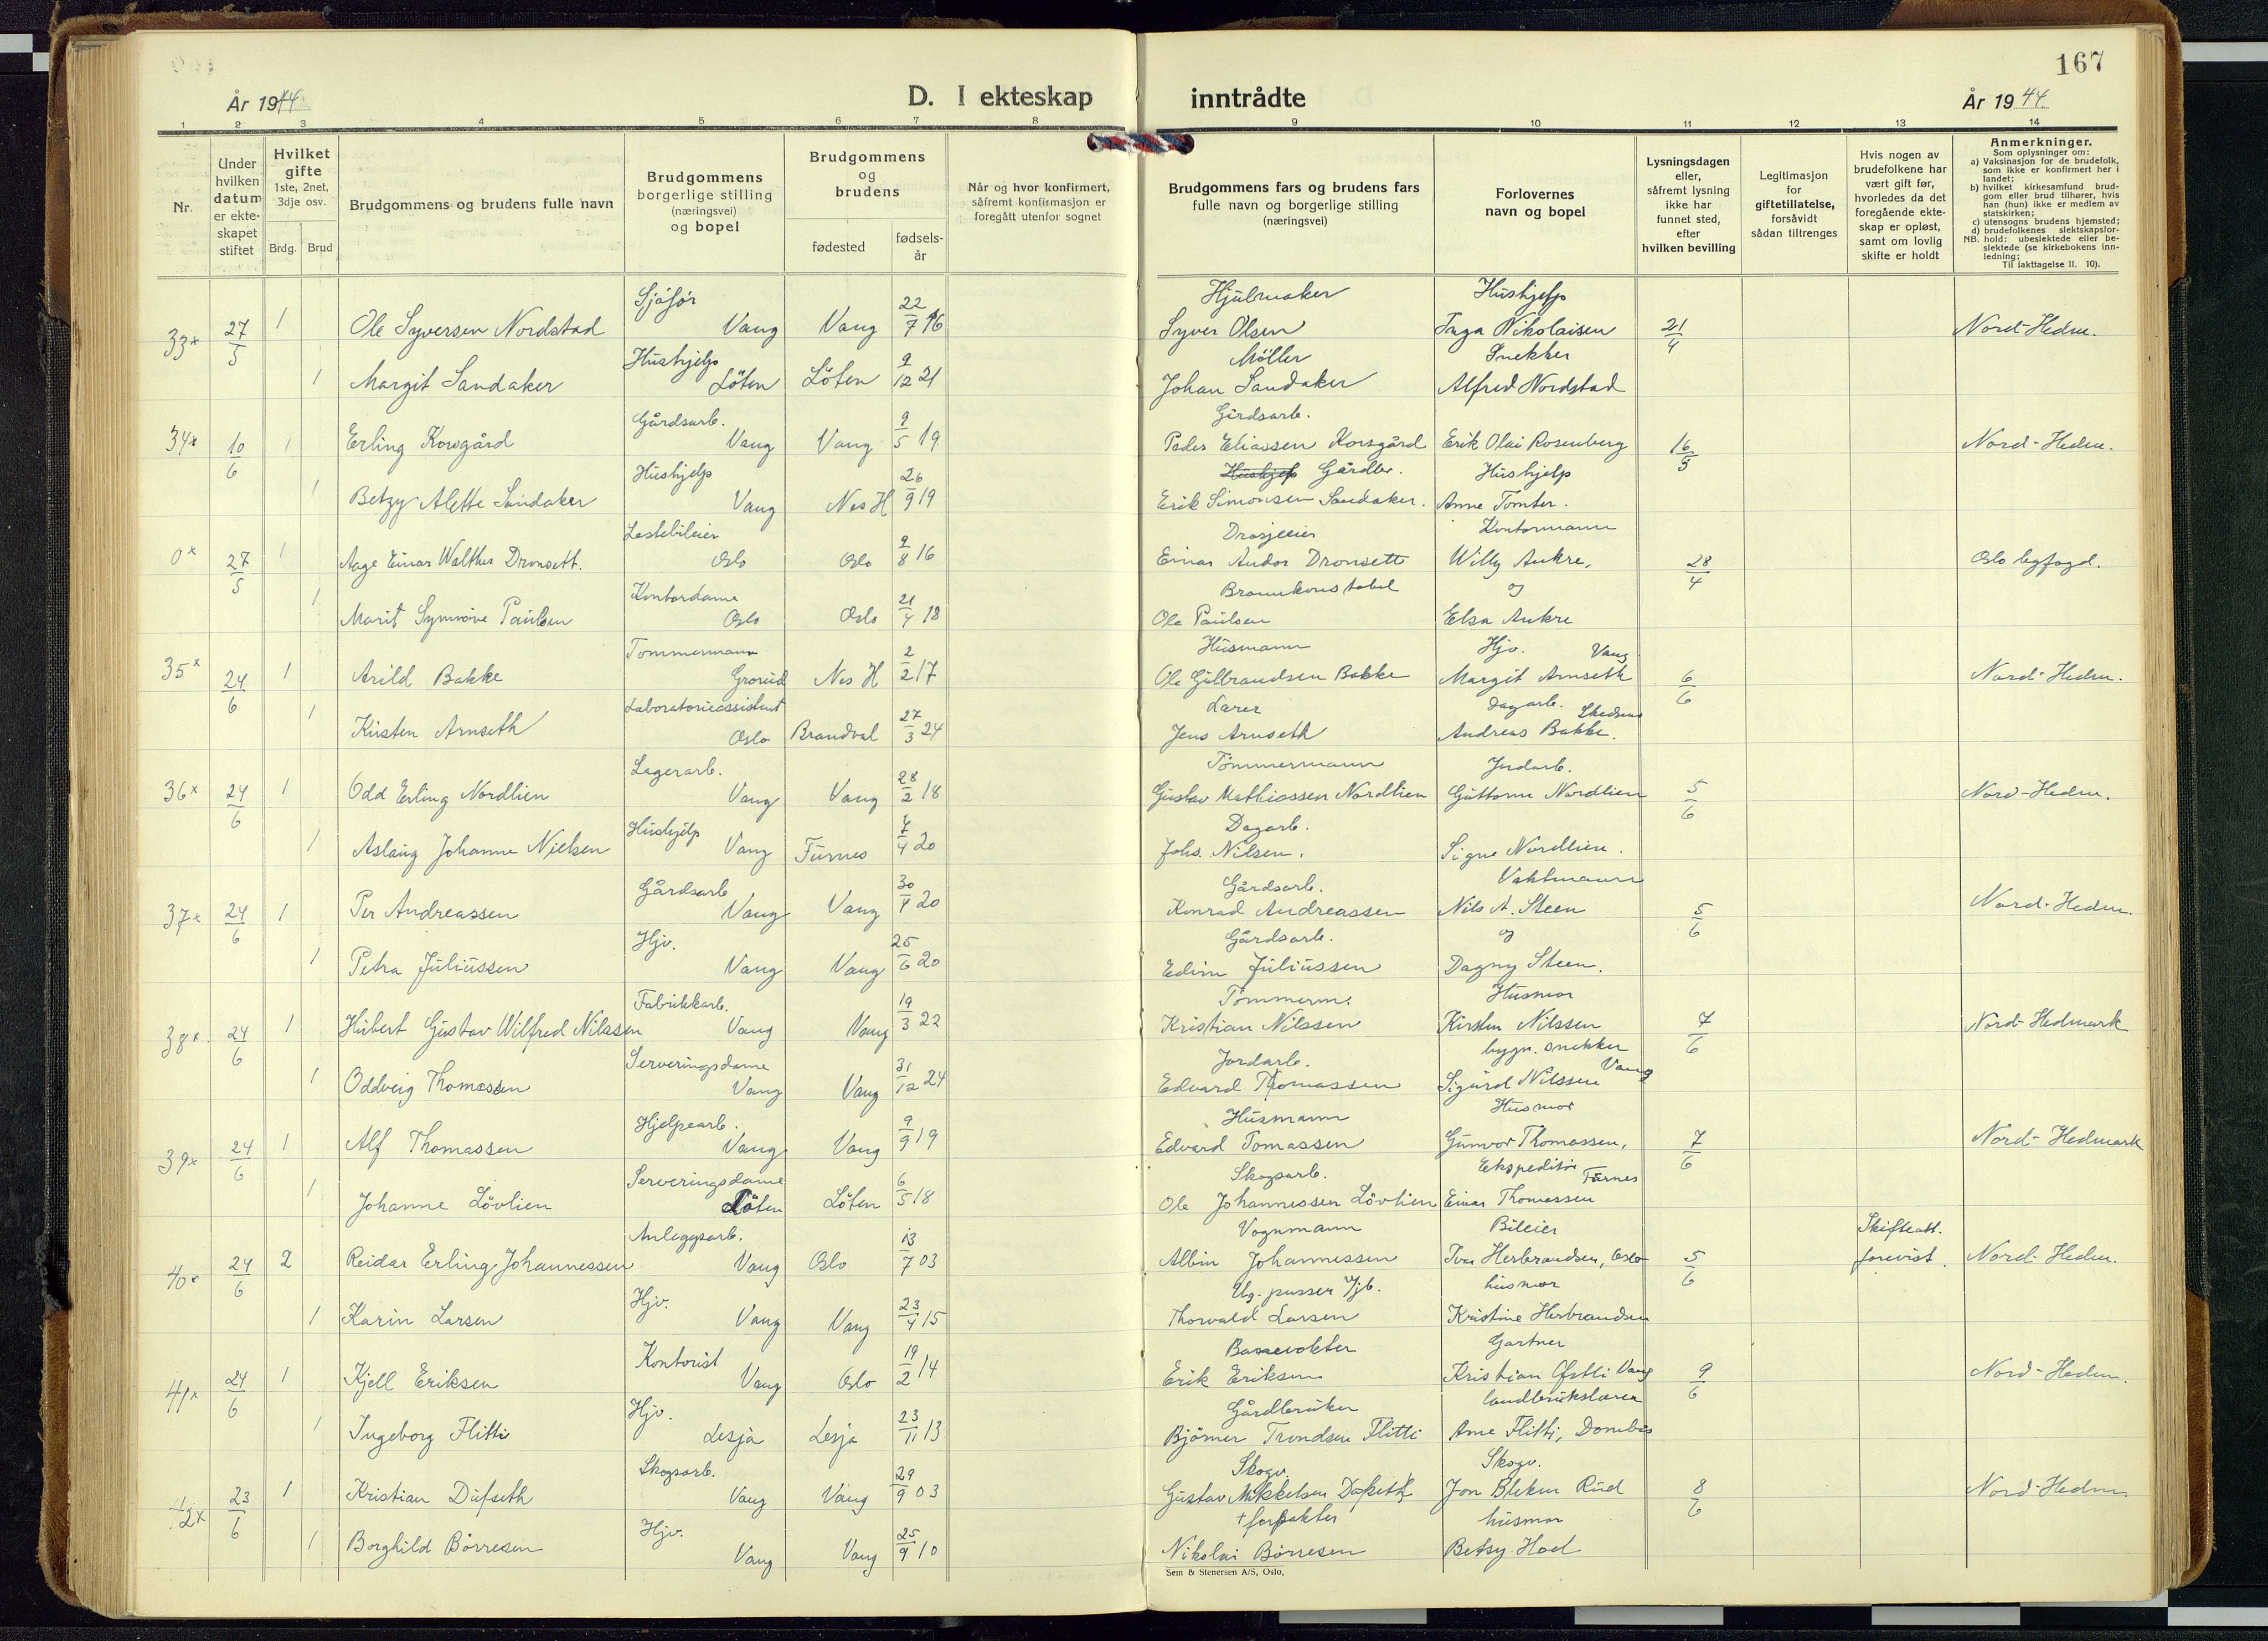 167
År 1944
D. I ekteskap inntrådte
År 1944.
1 2 3 4 5 6 7 8 9 10 11 12 13 14
Nr.
Under hvilken datum er ekteskapet stiftet
Hvilket gifte 1ste, 2net, 3dje osv.
Brdg. Brud
Brudgommens og brudens fulle navn
Brudgommens borgerlige stilling (næringsvei) og bopel
Brudgommens og brudens
fødested
fødselsår
Når og hvor konfirmert, såfremt konfirmasjon er foregått utenfor sognet
Brudgommens fars og brudens fars fulle navn og borgerlige stilling (næringsvei)
Forlovernes navn og bopel
Lysningsdagen eller, såfremt lysning ikke har funnet sted, efter hvilken bevilling
Legitimasjon for giftetillatelse, forsåvidt sådan tiltrenges
Hvis nogen av brudefolkene har vært gift før, hvorledes da det foregående ekteskap er opløst, samt om lovlig skifte er holdt
Anmerkninger.
Som oplysninger om:
a) Vaksinasjon for de brudefolk, som ikke er konfirmert her i landet;
b) hvilket kirkesamfund brudgom eller brud tilhører, hvis han (hun) ikke er medlem av statskirken;
c) utensogns brudens hjemsted;
d) brudefolkenes slektskapsforhold: ubeslektede eller beslektede (se kirkebokens innledning;
NB.
Til iakttagelse II. 10).
Sjåfør Hjulmaker Hushjelp
33x 27/5 1 Ole Syversen Nordstad Vang Vang 22/7 16 Syver Olsen Inga Nikolaisen 21/4 Nord-Hedm.
Hushjelp Møller Snekker
1 Margit Sandaker Löten Löten 9/12 21 Johan Sandaker Alfred Nordstad
Gårdsarb. Gårdsarb.
34x 10/6 1 Erling Korsgård Vang Vang 9/5 19 Peder Eliassen Korsgård Erik Olai Rosenberg 16/5 Nord-Hedm.
Hushjelp Hushjelp Gårdbr. Hushjelp
1 Betzy Alette Sandaker Vang Nes H 26/9 19 Erik Simonsen Sandaker. Anne Tomter.
Lastebileier Drosjeeier Kontormann
0x 27/5 1 Aage Einar Walther Dronsett. Oslo Oslo 9/8 16 Einar Andor Dronsett Willy Aukre, 28/4 Oslo byfogd.
Kontordame Brannkonstabel og
1 Marit Synnøve Paulsen Oslo Oslo 21/4 18 Ole Paulsen Elsa Aukre
Tømmermann Husmann Hjv. Vang
35x 24/6 1 Arild Bakke Grorud Nes H 2/2 17 Ole Gulbrandsen Bakke Margit Arnseth 6/6 Nord-Hedm.
Laboratorieassistent Lærer Dagarb. Skedsmo
1 Kirsten Arnseth Oslo Brandval 27/3 24 Jens Arnseth Andreas Bakke.
Lagerarb. Tømmermann Jordarb.
36x 24/6 1 Odd Erling Nordlien Vang Vang 28/2 18 Gustav Mathiassen Nordlien Guttorm Nordlien 5/6 Nord-Hedm.
Hushjelp Dagarb.
1 Aslaug Johanne Nielsen Vang Furnes 7/4 20 Johs. Nilsen. Signe Nordlien.
Gårdsarb Gårdsarb. Vaktmann
37x 24/6 1 Per Andreassen Vang Vang 30/7 20 Konrad Andreassen Nils A. Steen 5/6 Nord-Hedm.
Hjv. Gårdsarb. og
1 Petra Juliussen Vang Vang 25/6 20 Edvin Juliussen Dagny Steen.
Fabrikkarb. Tømmerm. Husmor
38x 24/6 1 Hubert Gustav Wilfred Nilssen Vang Vang 19/3 22 Kristian Nilssen Kirsten Nilssen 7/6 Nord-Hedmark
Serveringsdame Jordarb. bygn. snekker Vang
1 Oddveig Thomassen Vang Vang 31/12 24 Edvard Thomassen Sigurd Nilssen
Hjelpearb. Husmann Husmor
39x 24/6 1 Alf Thomassen Vang Vang 9/9 19 Edvard Tomassen Gunvor Thomassen, 7/6 Nord-Hedmark
Serveringsdame Skogsarb. Ekspeditør Furnes
1 Johanne Lövlien Löten Löten 6/5 18 Ole Johannessen Lövlien Einar Thomassen
Anleggsarb. Vognmann Bileier Skifteatt.
40x 24/6 2 Reidar Erling Johannessen Vang Oslo 13/7 03 Albin Johannessen Ivar Herbrandsen, Oslo 5/6 forevist. Nord-Hedm.
Hjv. Vg. pusser Jjb. husmor
1 Karin Larsen Vang Vang 23/4 15 Thorvald Larsen Kristine Herbrandsen
Kontorist Gartner
41x 24/6 1 Kjell Eriksen Vang Oslo 19/2 14 Erik Eriksen Kristian Østli Vang 9/6 Nord-Hedm.
Hjv. Gårdbruker landbrukslærer
1 Ingeborg Flitti Lesja Lesja 23/11 13 Bjørner Trondsen Flitti Arne Flitti, Dombås
Skogsarb. Skogv. Skogv.
42x 23/6 1 Kristian Dufseth Vang Vang 29/9 03 Gustav Mikkelsen Dufseth Jon Bleken Rud 8/6 Nord-Hedm.
Hjv. + forpakter husmor
1 Borghild Börresen Vang Vang 25/9 10 Nikolai Börresen Betsy Hoel
Sem & Stenersen A/S, Oslo.